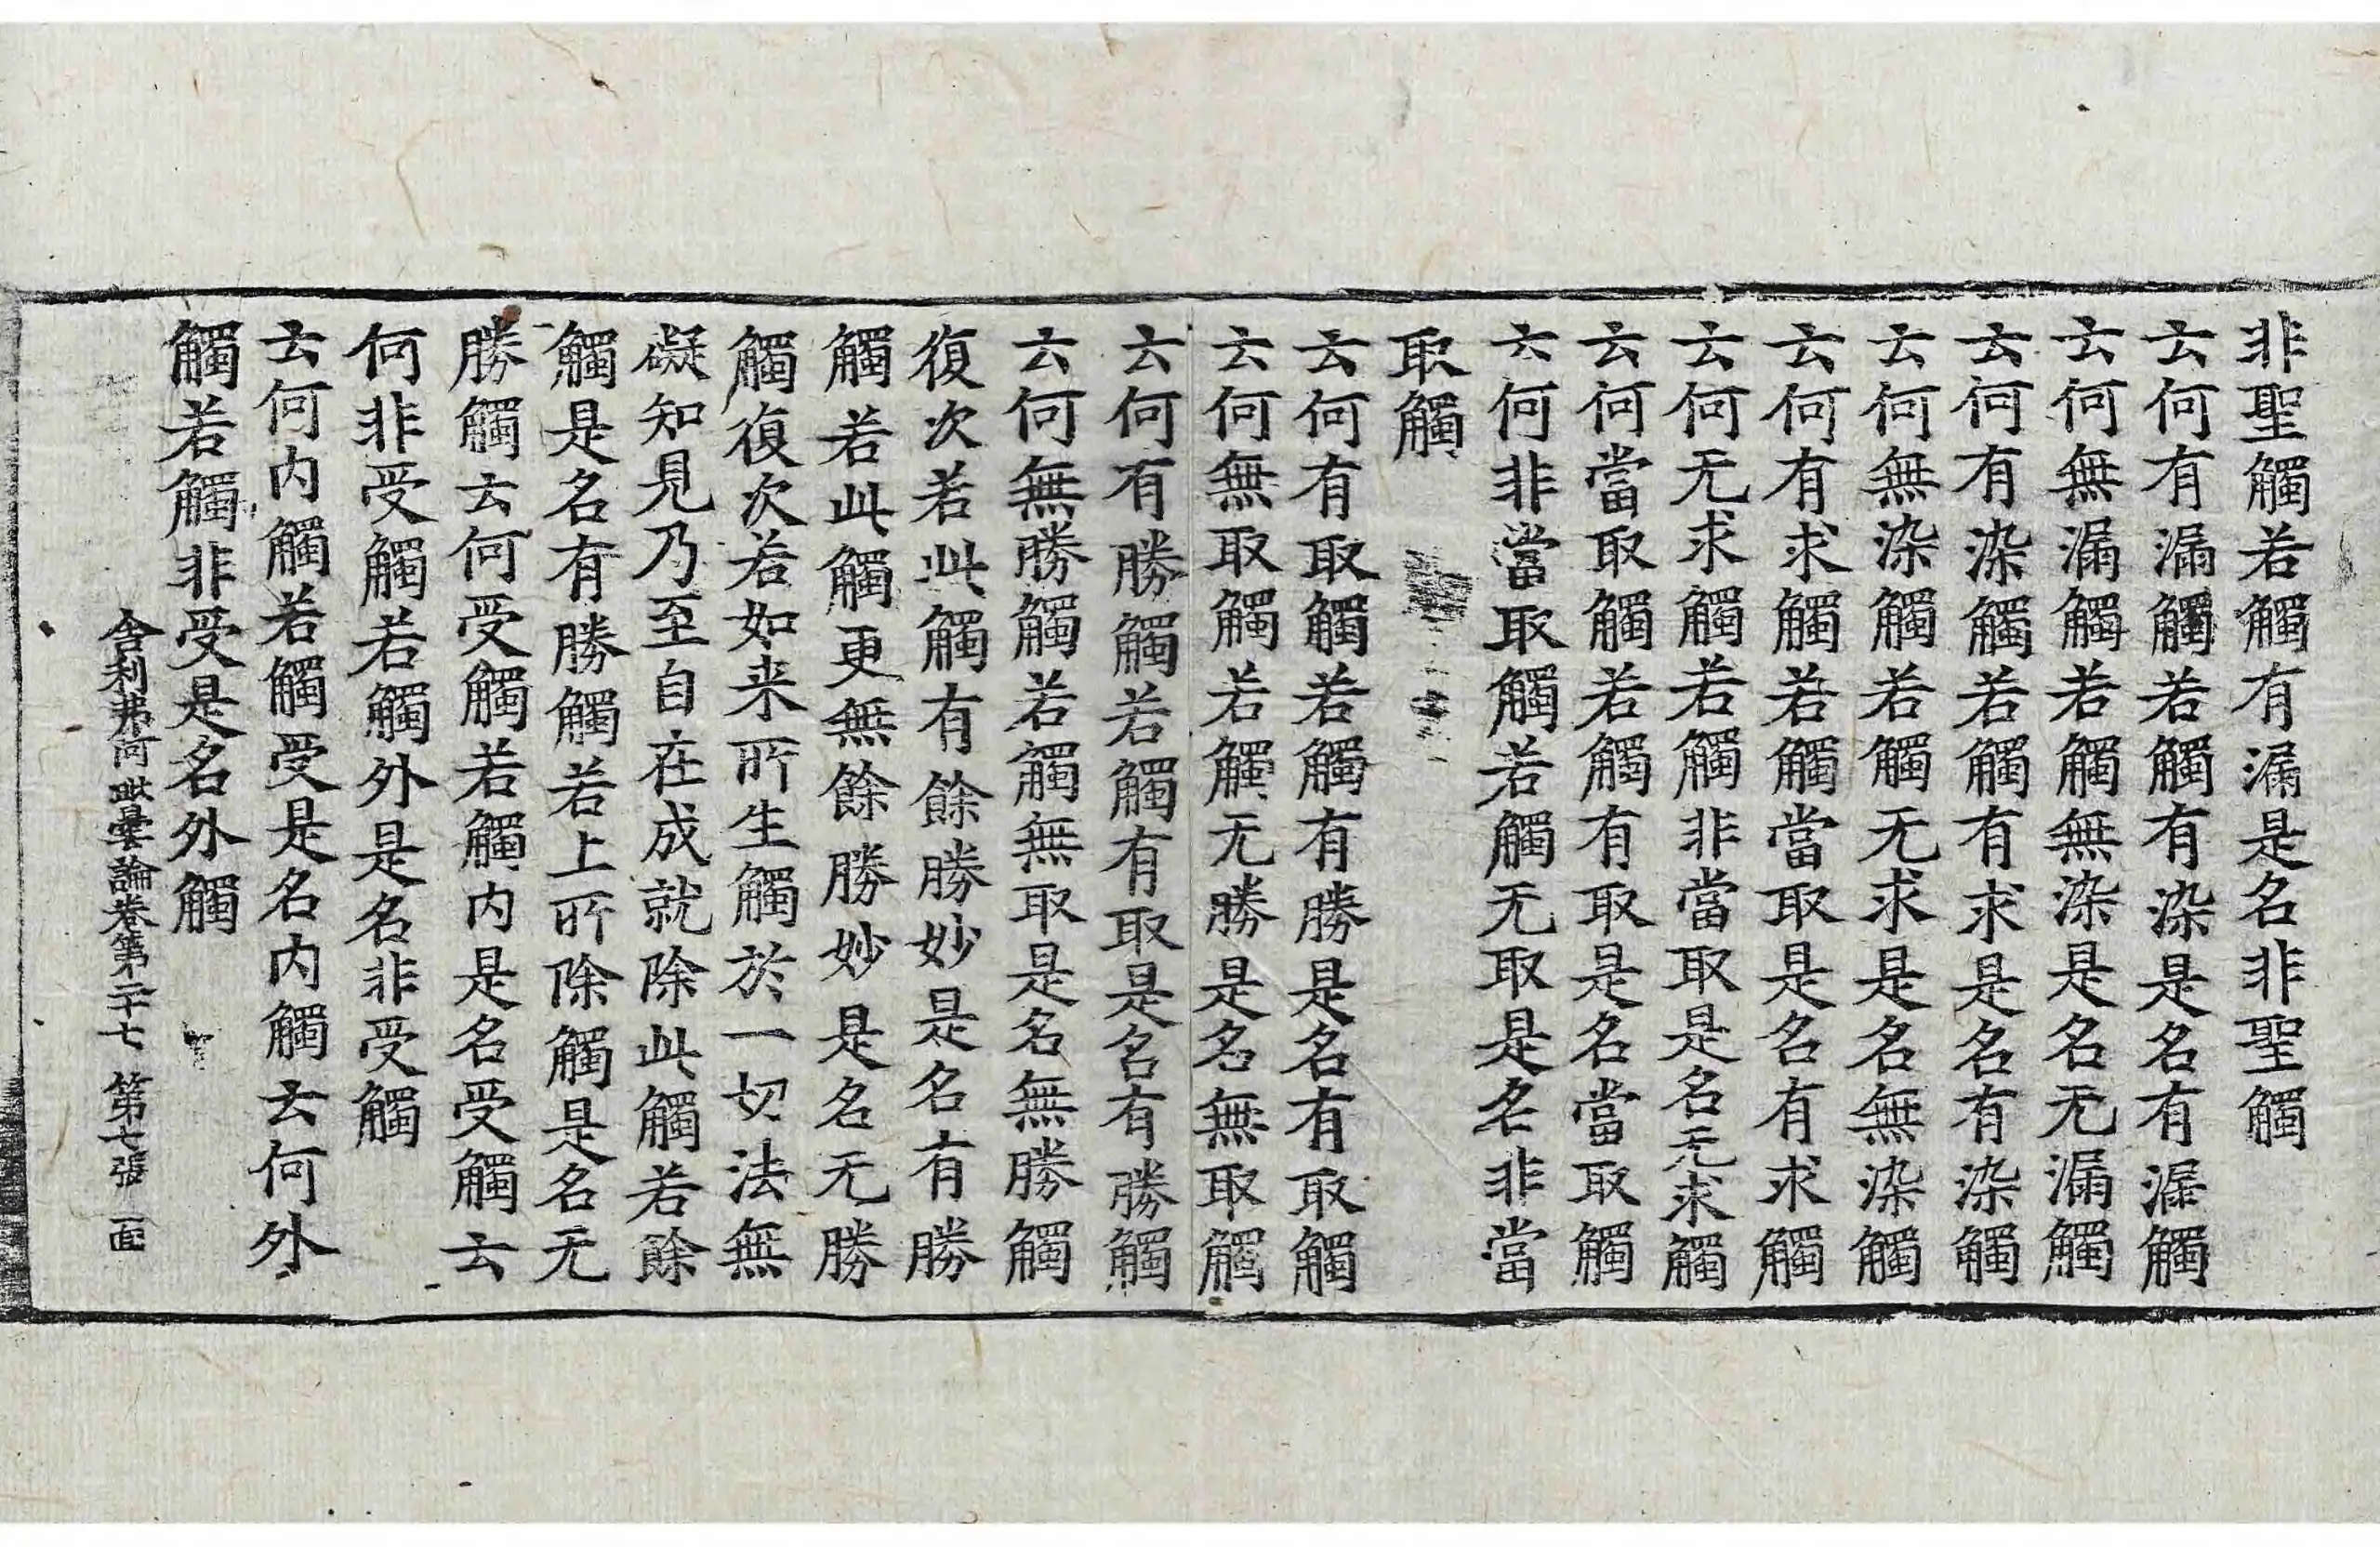 非聖觸若觸有漏是名非聖觸
云何有漏觸若觸有染是名有漏觸
云何無漏觸若觸無染是名无漏觸
云何有染觸若觸有求是名有染觸
云何無染觸若觸无求是名無染觸
云何有求觸若觸當取是名有求觸
云何无求觸若觸非當取是名无求觸
云何當取觸若觸有取是名當取觸
云何非當取觸若觸无取是名非當
取觸
云何有取觸若觸有勝是名有取觸
云何無取觸若觸无勝是名無取觸
云何有勝觸若觸有取是名有勝觸
云何無勝觸若觸無取是名無勝觸
復次若此觸有餘勝妙是名有勝
觸若此觸更無餘勝妙是名无勝
觸復次若如来所生觸於一切法無
礙知見乃至自在成就除此觸若餘
觸是名有勝觸若上所除觸是名无
勝觸云何受觸若觸内是名受觸云
何非受觸若觸外是名非受觸
云何内觸若觸受是名内觸云何外
觸若觸非受是名外觸
舍利弗阿毗曇論卷第二十七 第七張 一面